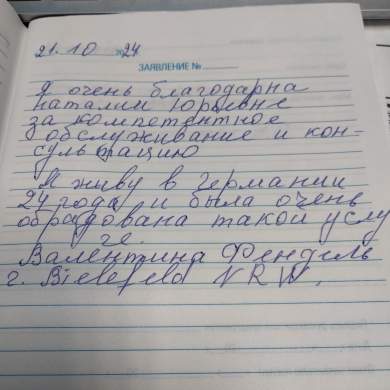 21.10 2024
ЗАЯВЛЕНИЕ №
Я очень благодарна
Наталии Юрьевне
за компетентное
обслуживание и кон-
сультацию
Я живу в Германии
24 года и была очень
обрадована такой услу
ге.
Валентина Фендель
г. Bielefeld NRW.